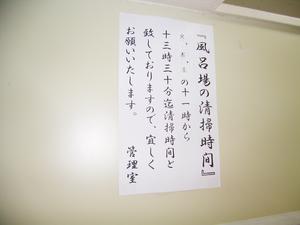 『風呂場の清掃時间』
火、木、土の十一時から
十三時三十分迄清掃時间と
致しておりますので、宜しく
お願いいたします。
管理室